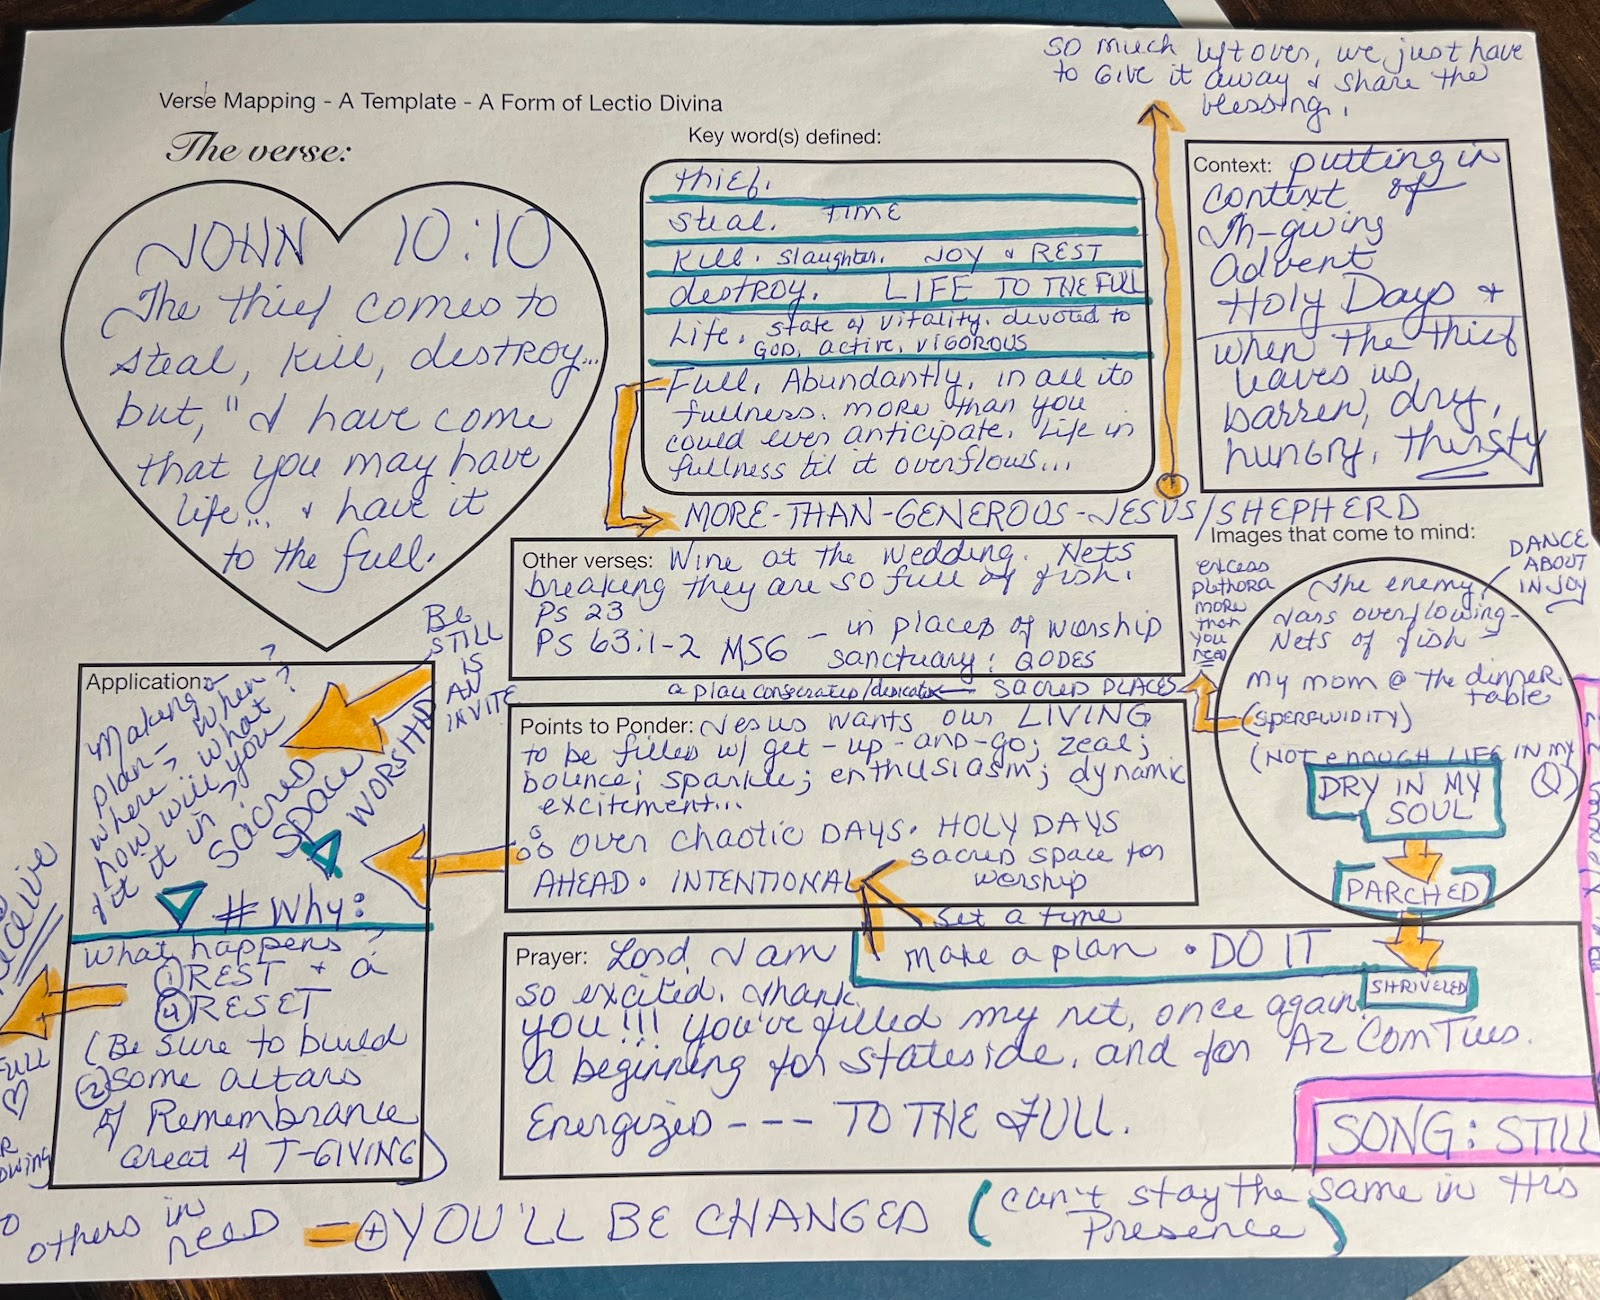 so much left over, we just have
to give it away & share the
blessing.
Verse Mapping - A Template - A Form of Lectio Divina
The verse:
JOHN 10:10
The thief comes to
steal, kill, destroy...
but, "I have come
that you may have
life... & have it
to the full.
Key word(s) defined:
thief.
steal. TIME
Kill. slaughter. JOY & REST
destroy. LIFE TO THE FULL
Life. state of vitality. devoted to
GOD, active, VIGOROUS
Full. Abundantly, in all its
fullness. more than you
could ever anticipate. Life in
fullness til it overflows...
MORE-THAN-GENEROUS-JESUS/SHEPHERD
Context: putting in
context of
Th-giving
Advent
Holy Days &
when the thief
leaves us
barren, dry,
hungry, thirsty
Other verses: Wine at the wedding. Nets
breaking they are so full of fish.
PS 23
PS 63:1-2 MSG - in places of worship
sanctuary: QODES
a place consecrated/dedicated SACRED PLACES
Images that come to mind:
DANCE
ABOUT
IN JOY
The enemy
Jars overflowing-
Nets of fish
my mom @ the dinner
table
(SPERFLUIDITY)
(NOT ENOUGH LIFE IN MY
DRY IN MY
SOUL
PARCHED
SHRIVELED
excess
plethora
more
than
you
need
Points to Ponder: Jesus wants our LIVING
to be filled w/ get-up-and-go; zeal;
bounce; sparkle; enthusiasm; dynamic
excitement...
over chaotic DAYS. HOLY DAYS
AHEAD. INTENTIONAL
sacred space for
worship
set a time
make a plan • DO IT
Be
STILL
IS
AN
INVITE
Application:
Making a
plan - when?
where? what?
how will you
fit it in?
SACRED
SPACE
WORSHIP
# Why:
What happens?
① REST & a
④ RESET
(Be sure to build
② some altars
of Remembrance
Great 4 T-GIVING)
Receive
FULL
others in
need
Prayer: Lord, I am
so excited. Thank
you!!! You've filled my net, once again.
A beginning for stateside, and for AZ ComTues.
Energized --- TO THE FULL.
SONG: STILL
= + YOU'LL BE CHANGED (can't stay the same in His
Presence)